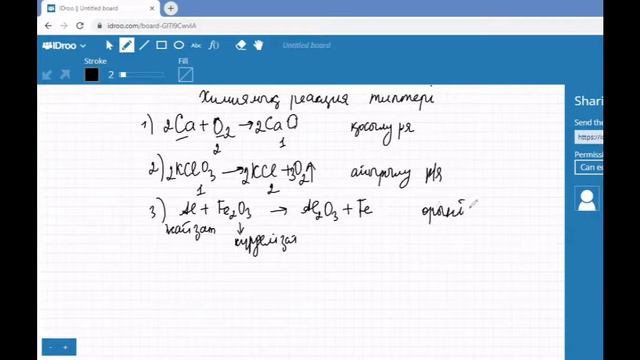 IDroo || Untitled board
idroo.com/board-GlTl9CwvlA
IDroo
Abc
f(x)
Untitled board
Stroke
Fill
2
Shari
Send the
https://i
Permission
Can e
Химиялық реакция типтері
1) 2Ca + O2 → 2CaO қосылу р-я
2 1
2) 2KClO3 → 2KCl + 3O2↑ айырылу р-я
1 2
3) Al + Fe2O3 → Al2O3 + Fe
жай зат
күрделі зат
- +